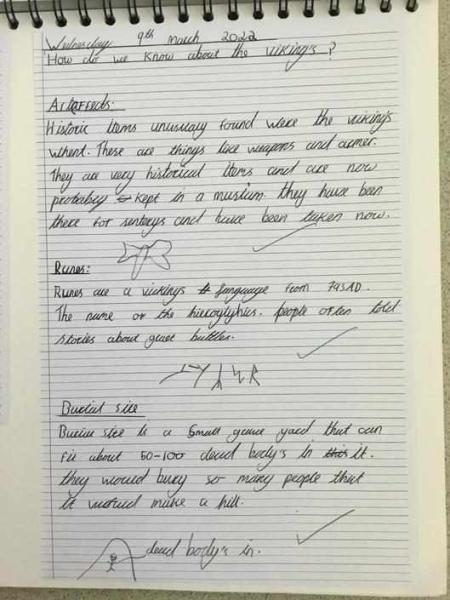 Wednesday 9th March 2022
How do we know about the viking's?
Arteffects:
Historic items unusualy found were the viking's
whent. These are things like weapons and armer.
They are very historical items and are now
probabley kept in a musium. they have been
there for senterys and have been taken now.
Runes:
Runes are a vickings language from 793AD.
The name or the hieroglyhics. people often told
stories about grave battles.
Burial site
Burial site is a small grave yard that can
fit about 50-100 dead body's in it.
they would burey so many people that
it would make a hill.
dead body's in.